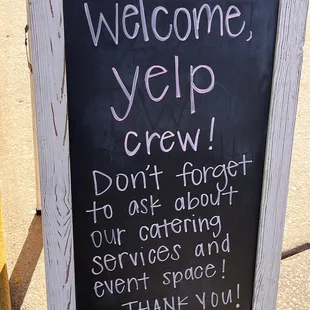 Welcome,
yelp
crew!
Don't forget
to ask about
our catering
services and
event space!
THANK YOU!